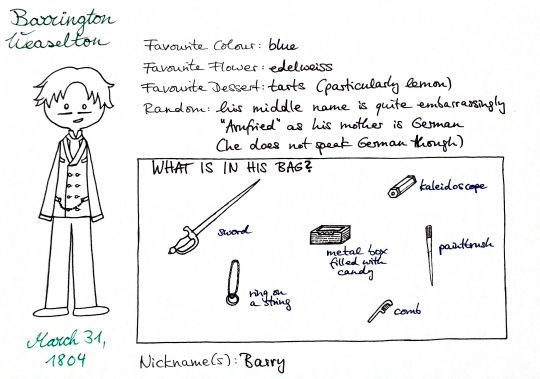 Barrington
Weaselton
Favourite Colour: blue
Favourite Flower: edelweiss
Favourite Dessert: tarts (particularly lemon)
Random: his middle name is quite embarrassingly
"Arnfried" as his mother is German
(he does not speak German though)
WHAT IS IN HIS BAG?
kaleidoscope
sword
metal box
filled with
candy
paintbrush
ring on
a string
comb
March 31,
1804
Nickname(s): Barry